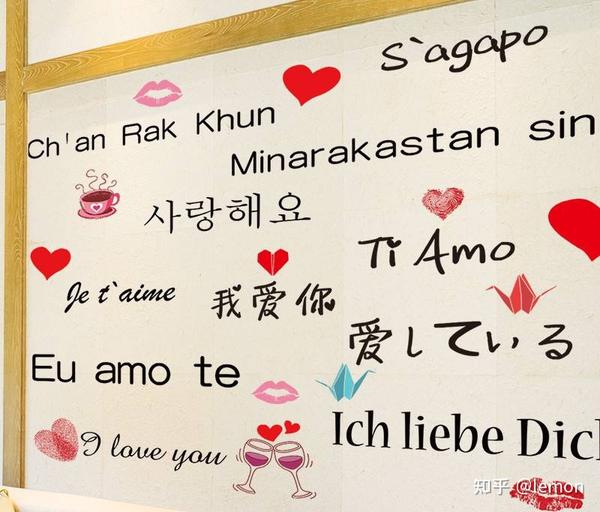 S`agapo
Ch'an Rak Khun
Minarakastan sin
사랑해요
Ti Amo
Je t`aime
我爱你
愛している
Eu amo te
Ich liebe Dich
I love you
知乎 @lemon